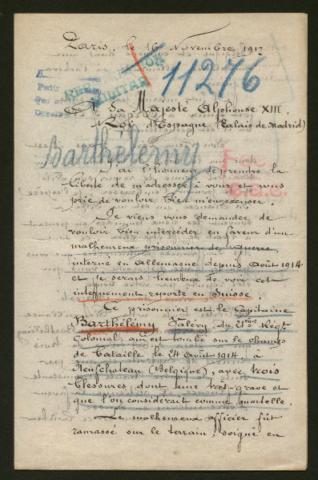 Paris, le 16 Novembre 1917
11276
A Sa Majesté Alphonse XIII,
Roi d'Espagne (Palais de Madrid)
Barthélemy
J'ai l'honneur de prendre la
liberté de m'adresser à vous et vous
prie de vouloir bien m'excuser.
Je viens vous demander de
vouloir bien intercéder en faveur d'un
malheureux prisonnier de guerre
interné en Allemagne depuis Août 1914
et je serais heureux de vous cet
rapatrié en Suisse.
Ce prisonnier est le Capitaine
Barthélemy Valéry du Régt
Colonial qui est tombé sur le champ
de bataille le 24 Août 1914, à
Neufchâteau (Belgique), avec trois
blessures dont une très grave et
que l'on considérait comme mortelle.
Le malheureux officier fût
ramassé sur le terrain, soigné en